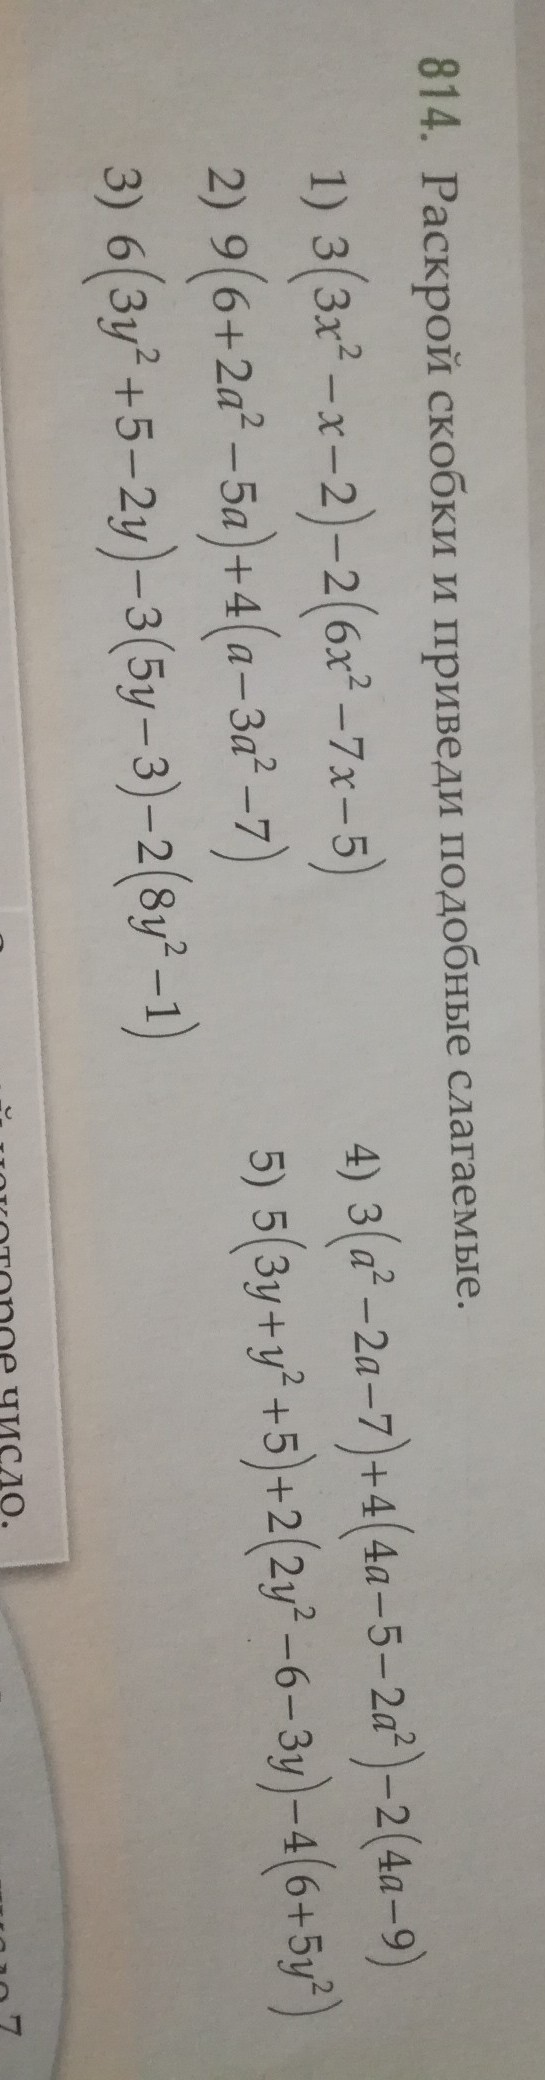 814. Раскрой скобки и приведи подобные слагаемые.
1) 3(3x² − x − 2) − 2(6x² − 7x − 5)
2) 9(6 + 2a² − 5a) + 4(a − 3a² − 7)
3) 6(3y² + 5 − 2y) − 3(5y − 3) − 2(8y² − 1)
4) 3(a² − 2a − 7) + 4(4a − 5 − 2a²) − 2(4a − 9)
5) 5(3y + y² + 5) + 2(2y² − 6 − 3y) − 4(6 + 5y²)
некоторое число.
7